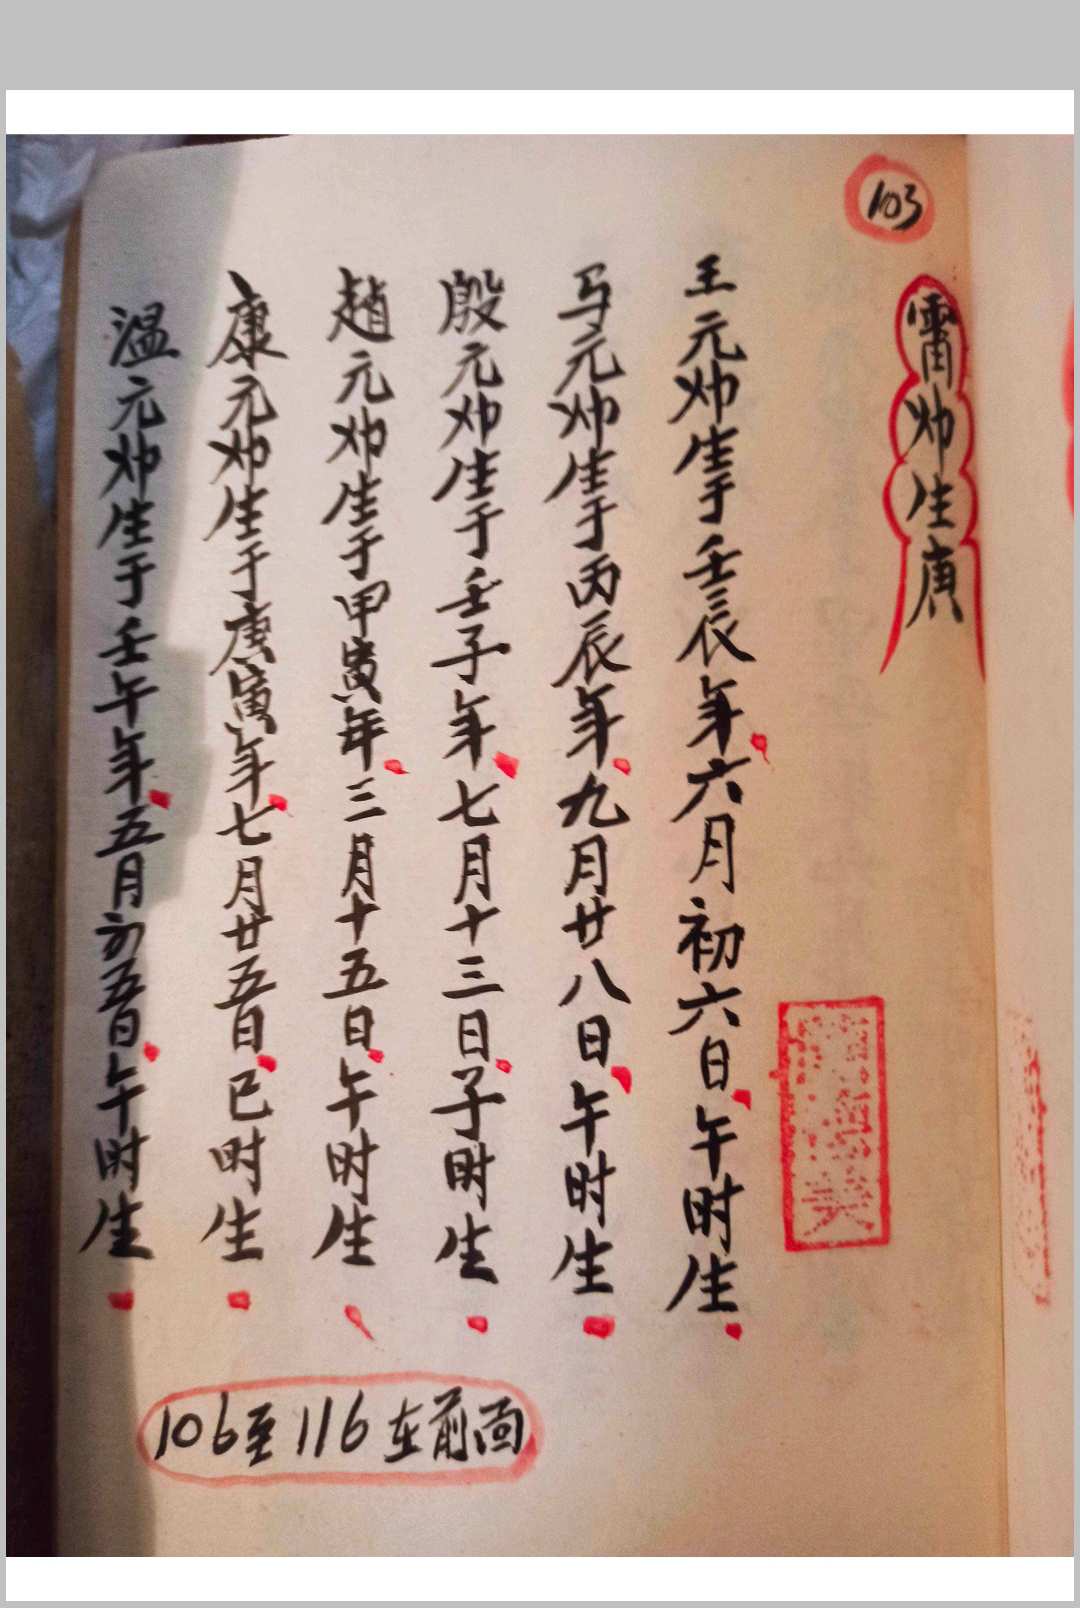 103
雷帅生庚
王元帅生于壬辰年六月初六日午时生
马元帅生于丙辰年九月廿八日午时生
殷元帅生于壬子年七月十三日子时生
趙元帅生于甲寅年三月十五日午时生
康元帅生于庚寅年七月廿五日巳时生
温元帅生于壬午年五月初五日午时生
106至116在前面